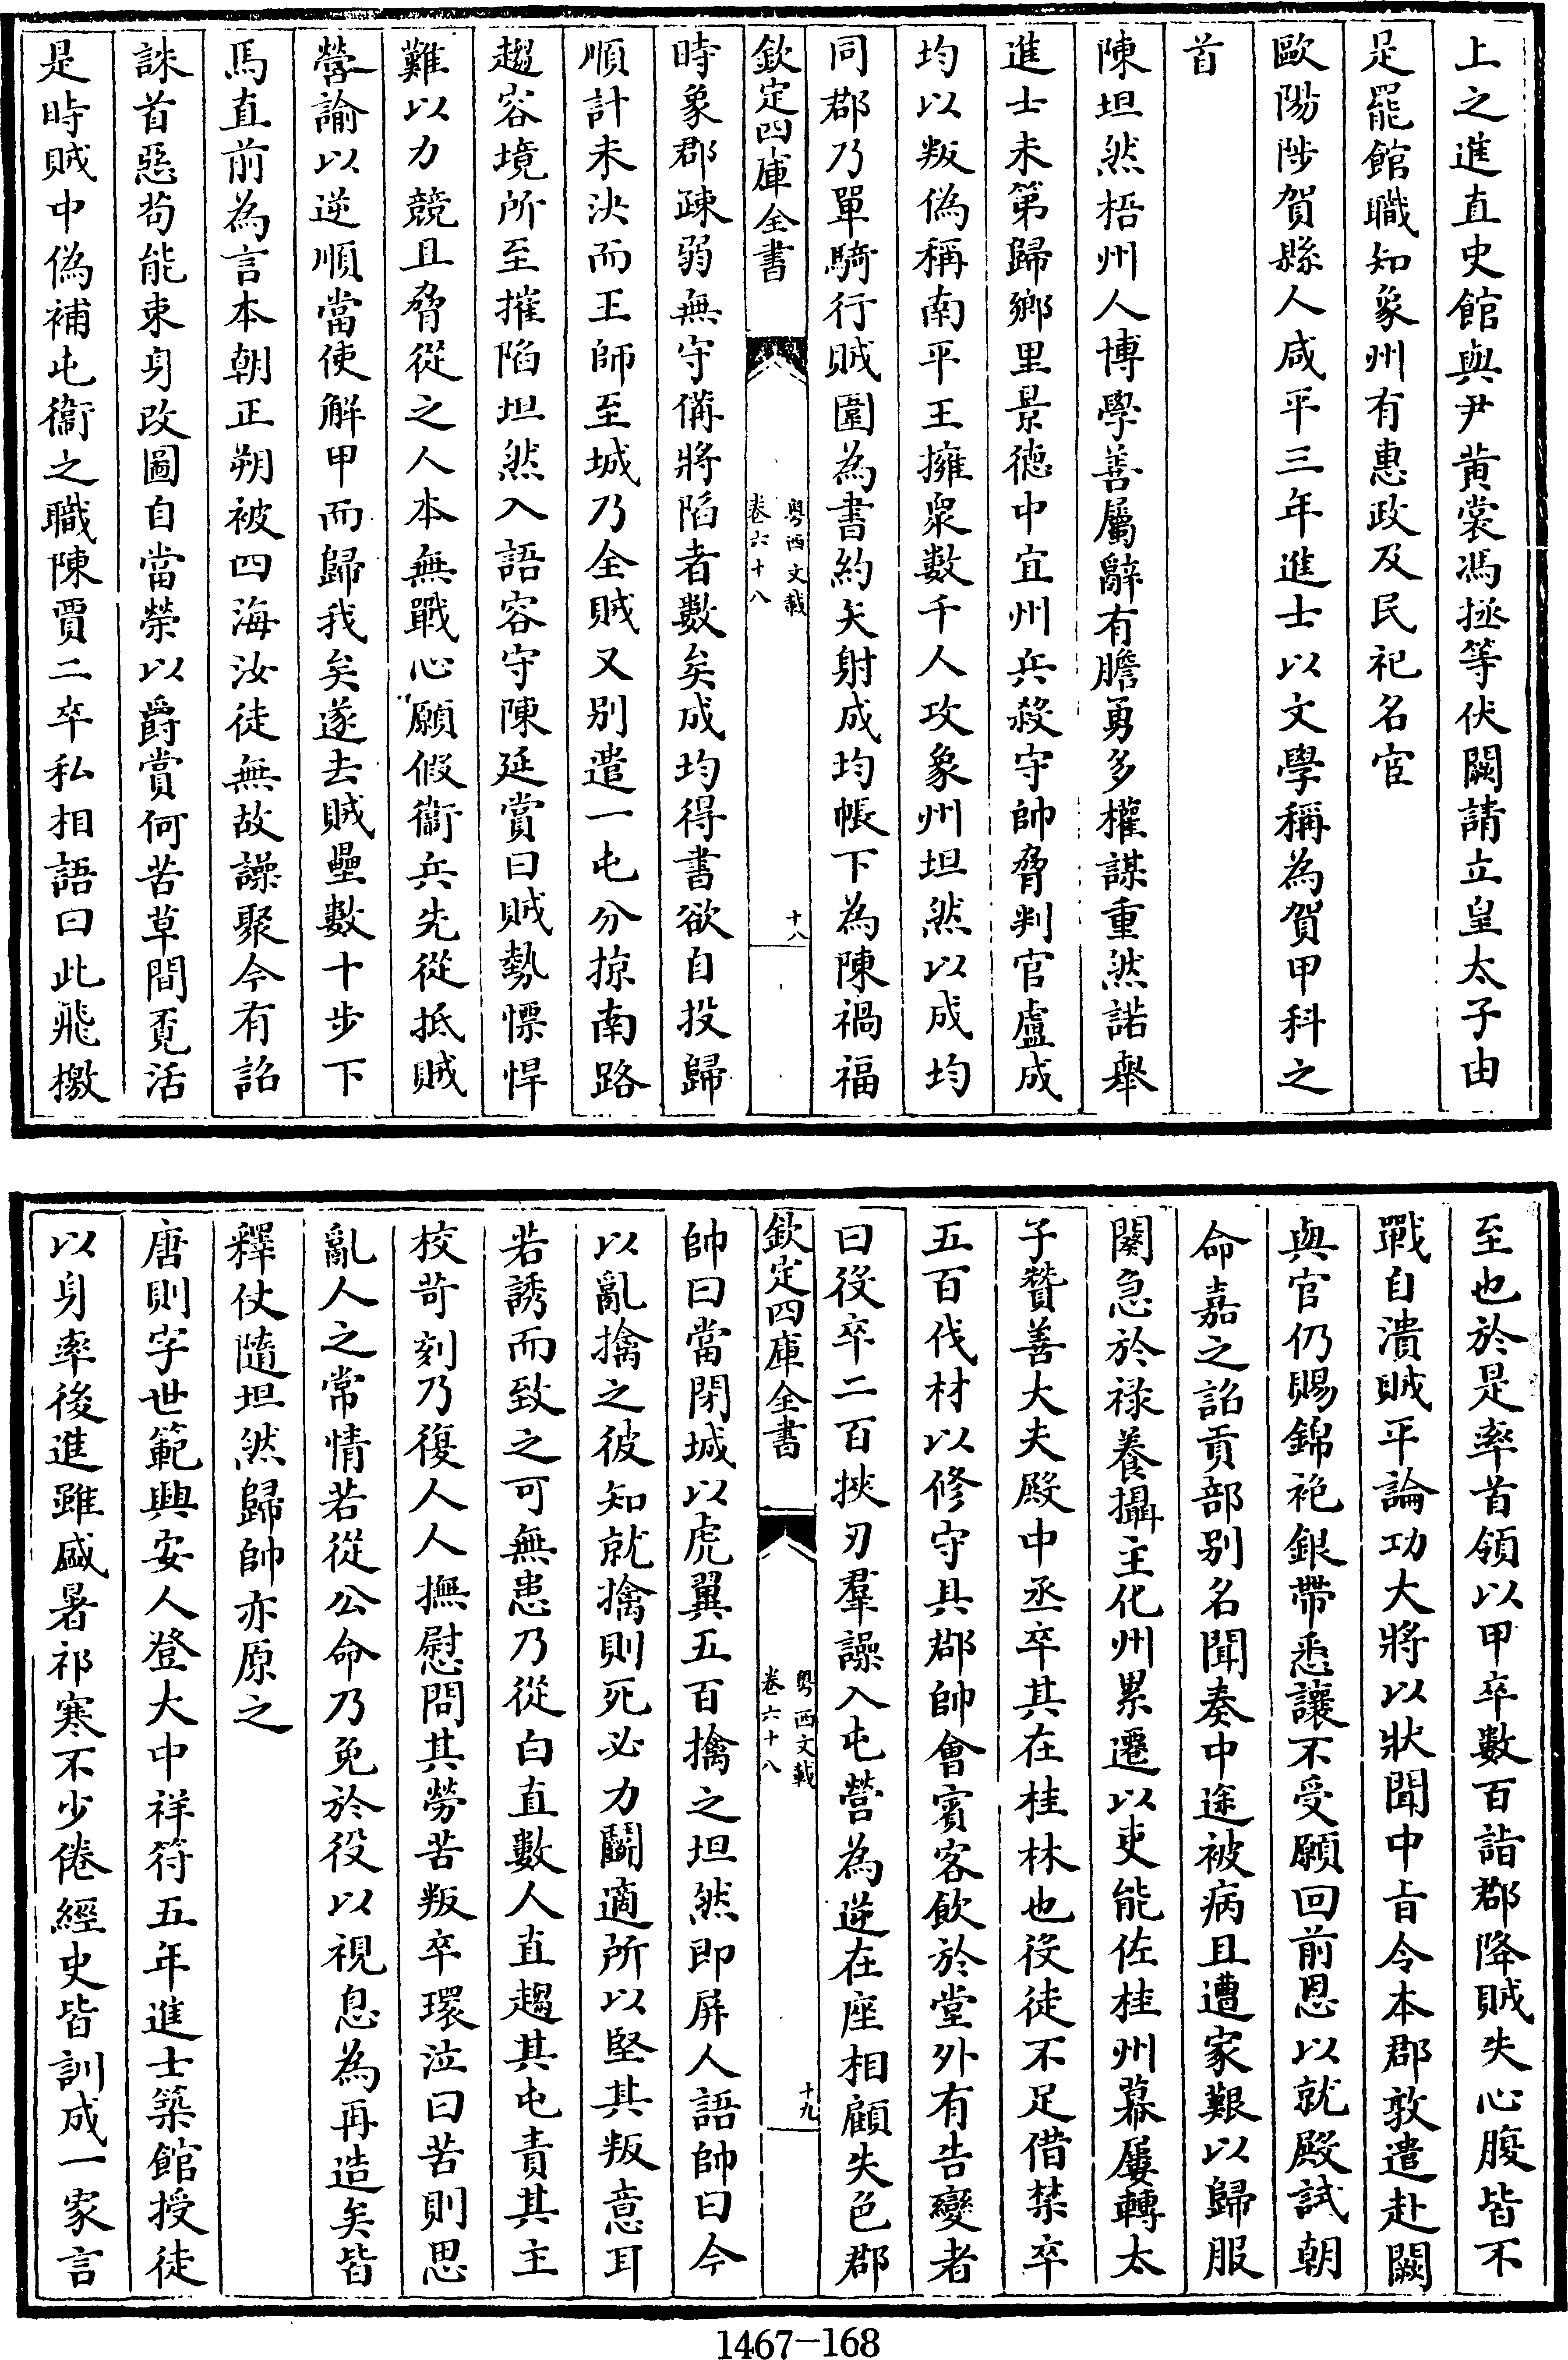 上之進直史館與尹黄裳馮拯等伏闕請立皇太子由
是罷館職知象州有惠政及民祀名宦
歐陽陟賀縣人咸平三年進士以文學稱為賀甲科之
首
陳坦然梧州人博學善屬辭有膽勇多權謀重然諾舉
進士未第歸鄉里景徳中宜州兵殺守帥脅判官盧成
均以叛偽稱南平王擁衆數千人攻象州坦然以成均
同郡乃單騎行賊圍為書約矢射成均帳下為陳禍福
欽定四庫全書
粤西文載
卷六十八
十八
時象郡疎弱無守備將陷者數矣成均得書欲自投歸
順計未決而王師至城乃全賊又别遣一屯分掠南路
趨容境所至摧陷坦然入語容守陳延賞曰賊勢慓悍
難以力競且脅從之人本無戰心願假衞兵先從抵賊
營諭以逆順當使解甲而歸我矣遂去賊壘數十步下
馬直前為言本朝正朔被四海汝徒無故譟聚今有詔
誅首惡茍能束身改圖自當榮以爵賞何苦草間覔活
是時賊中偽補屯衞之職陳賈二卒私相語曰此飛檄
至也於是率首領以甲卒數百詣郡降賊失心腹皆不
戰自潰賊平論功大將以狀聞中㫖令本郡敦遣赴闕
與官仍賜錦袍銀帶悉讓不受願回前恩以就殿試朝
命嘉之詔貢部别名聞奏中途被病且遭家艱以歸服
闋急於禄養攝主化州累遷以吏能佐桂州幕屢轉太
子贊善大夫殿中丞卒其在桂林也役徒不足借禁卒
五百伐材以修守具郡帥會賓客飲於堂外有告變者
曰役卒二百挾刃羣譟入屯營為逆在座相顧失色郡
欽定四庫全書
粤西文載
卷六十八
十九
帥曰當閉城以虎翼五百擒之坦然即屏人語帥曰今
以亂擒之彼知就擒則死必力鬭適所以堅其叛意耳
若誘而致之可無患乃從白直數人直趨其屯責其主
校苛刻乃復人人撫慰問其勞苦叛卒環泣曰苦則思
亂人之常情若從公命乃免於役以視息為再造矣皆
釋仗隨坦然歸帥亦原之
唐則字世範興安人登大中祥符五年進士築館授徒
以身率後進雖盛暑祁寒不少倦經史皆訓成一家言
1467-168